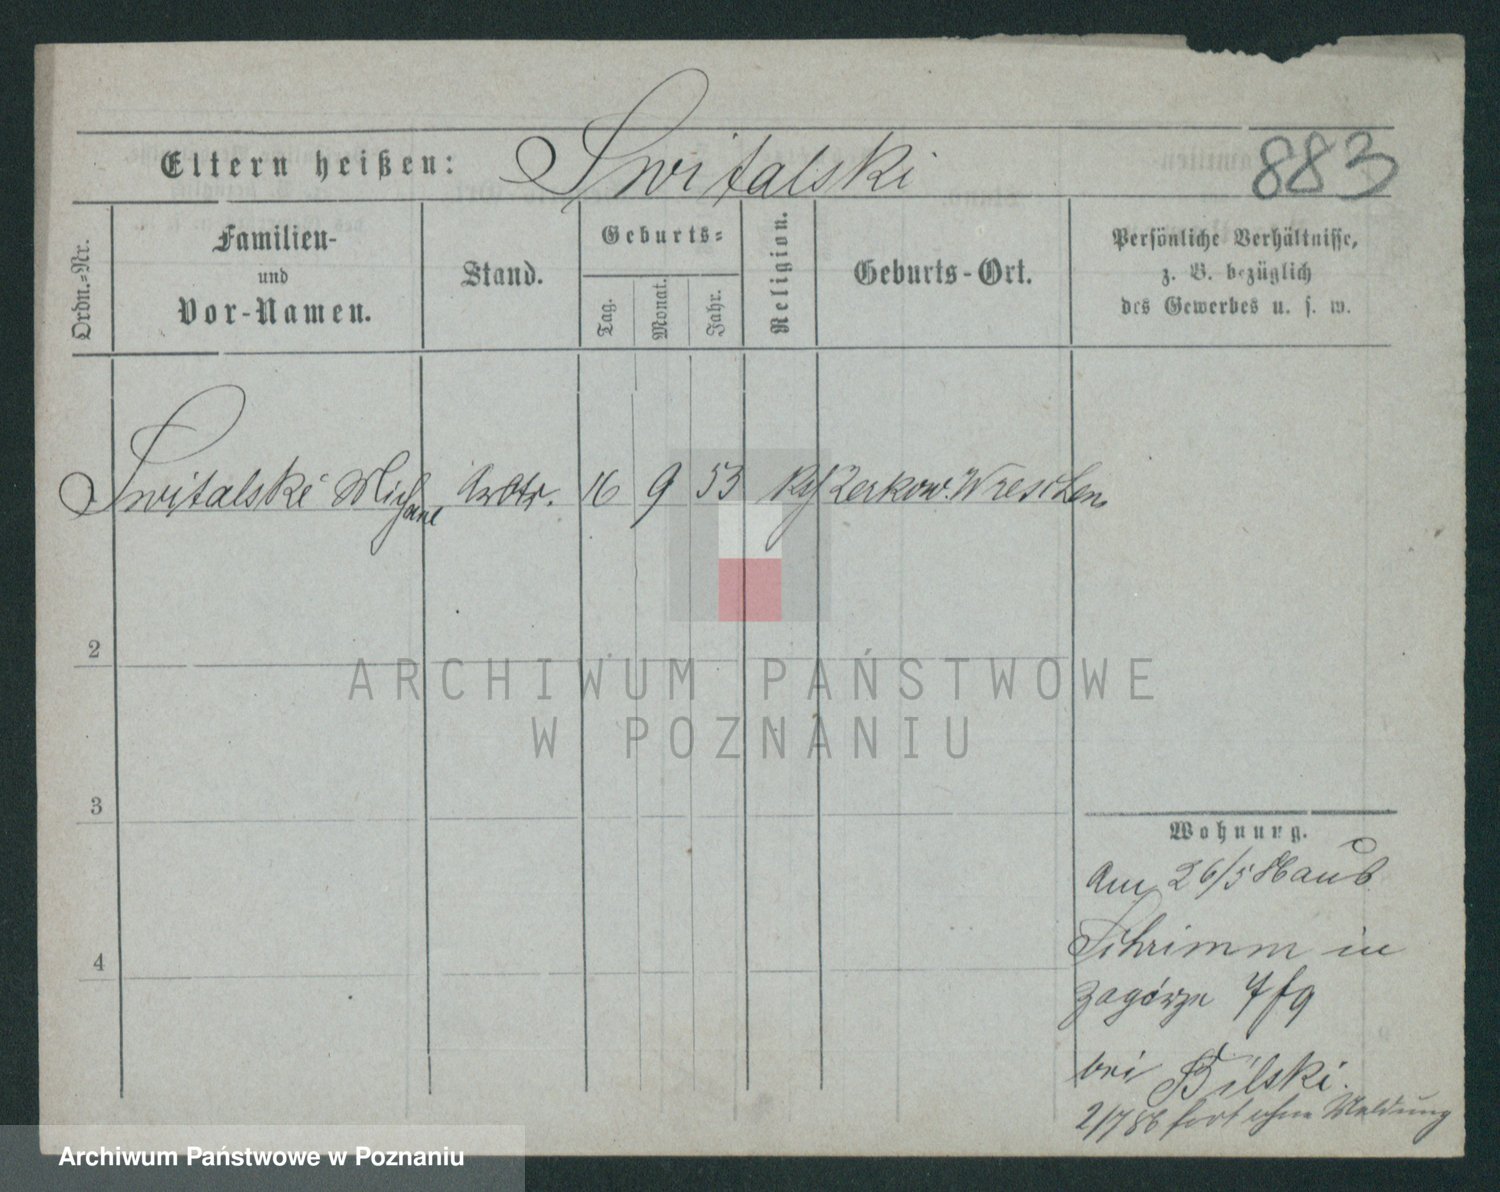 Eltern heißen: Switalski 883
Ordn.-Nr.
Familien-
und
Vor-Namen.
Stand.
Geburts-
Tag.
Monat.
Jahr.
Religion.
Geburts-Ort.
Persönliche Verhältnisse,
z. B. bezüglich
des Gewerbes u. s. w.
Switalski Michael Arbtr. 16 9 53 Zerkow. Wreschen
2
3
4
Wohnung.
Am 26/5
Schrimm in
Zagórze 7
bei Bilski.
2/7 86 fort ohne Meldung
ARCHIWUM PAŃSTWOWE
W POZNANIU
Archiwum Państwowe w Poznaniu